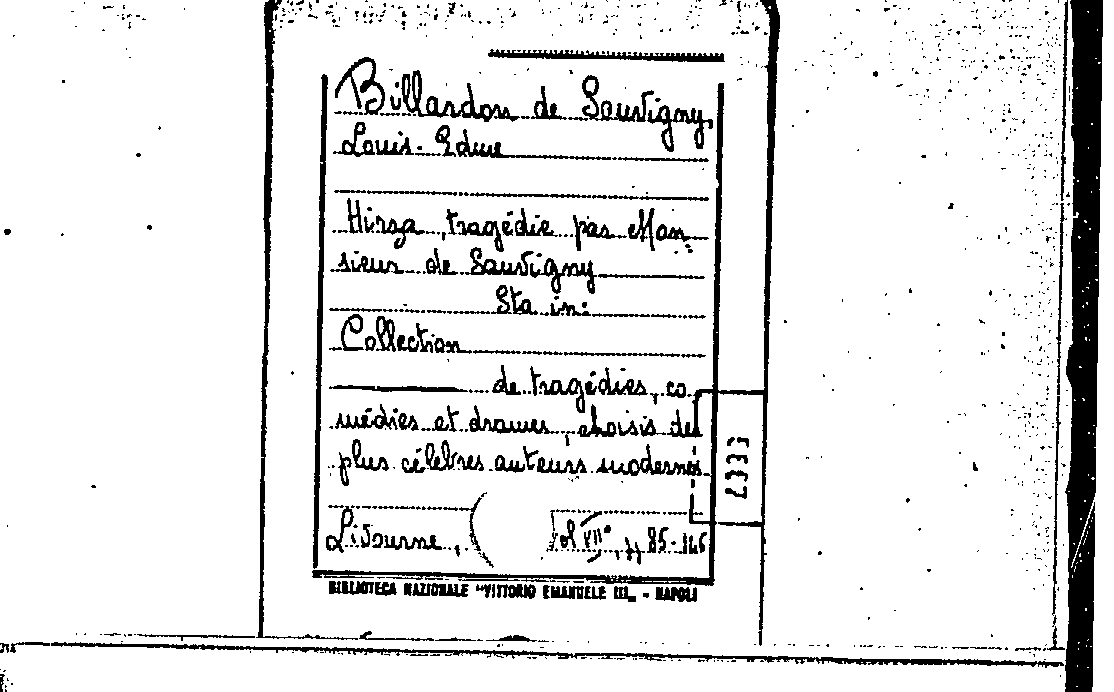 Billardon de Sauvigny,
Louis-Edme
Hirza, tragédie par Mon-
sieur de Sauvigny
Sta in:
Collection
de tragédies, co
médies et drames, choisis des
plus célèbres auteurs modernes
Livourne, vol VII°, pp 85-146
BIBLIOTECA NAZIONALE "VITTORIO EMANUELE III" - NAPOLI